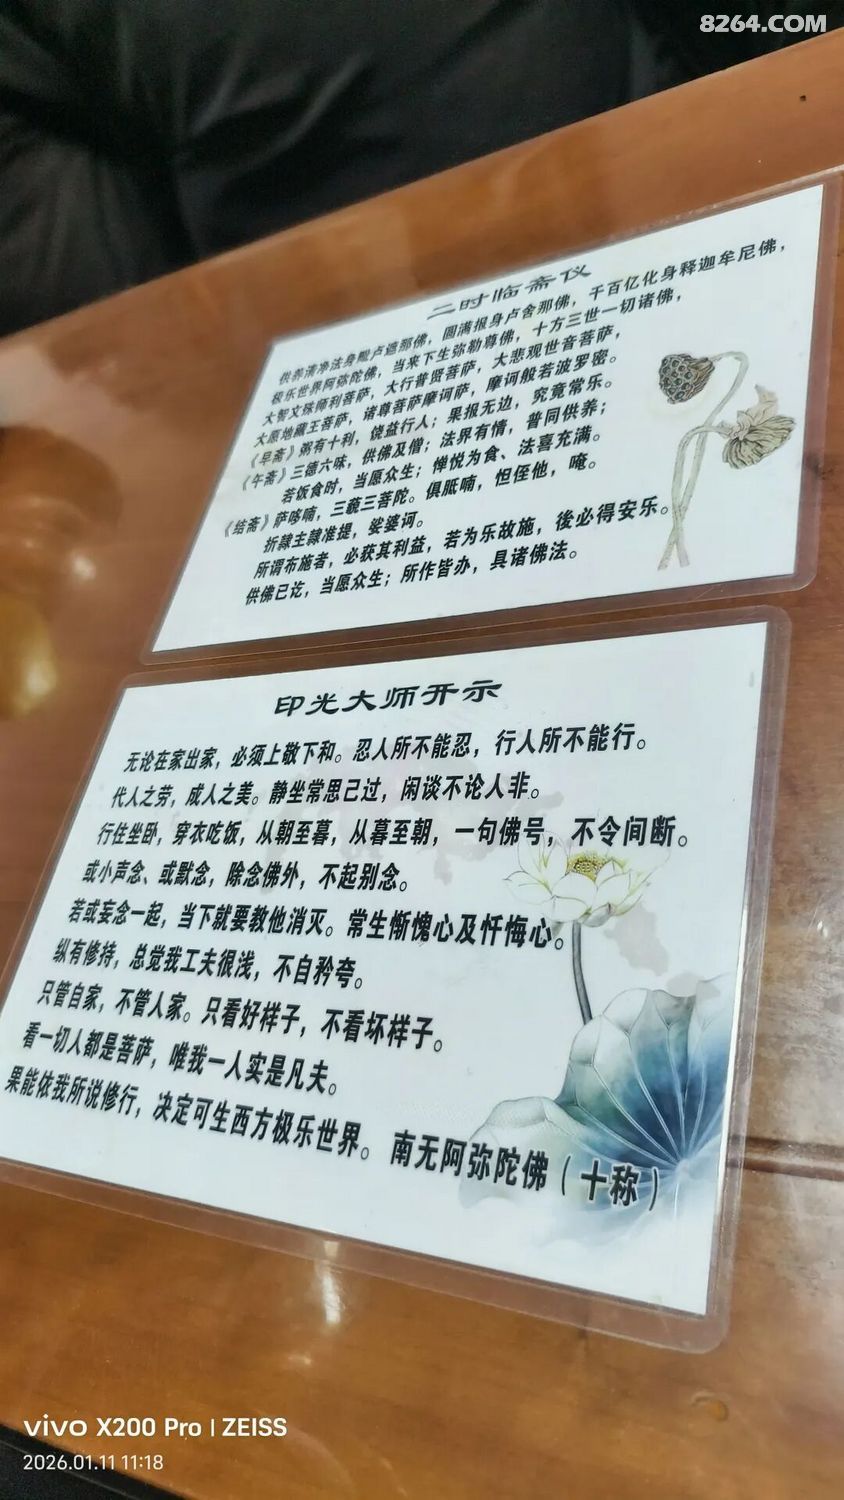 8264.COM
二时临斋仪
供养清净法身毗卢遮那佛，圆满报身卢舍那佛，千百亿化身释迦牟尼佛，
极乐世界阿弥陀佛，当来下生弥勒尊佛，十方三世一切诸佛，
大智文殊师利菩萨，大行普贤菩萨，大悲观世音菩萨，
大原地藏王菩萨，诸尊菩萨摩诃萨，摩诃般若波罗密。
《早斋》粥有十利，饶益行人；果报无边，究竟常乐。
《午斋》三德六味，供佛及僧；法界有情，普同供养；
若饭食时，当愿众生；惮悦为食、法喜充满。
《结斋》萨哆喃，三藐三菩陀。俱胝喃，怛侄他，唵。
折隷主隷准提，娑婆诃。
所谓布施者，必获其利益，若为乐故施，後必得安乐。
供佛已讫，当愿众生；所作皆办，具诸佛法。
印光大师开示
无论在家出家，必须上敬下和。忍人所不能忍，行人所不能行。
代人之劳，成人之美。静坐常思己过，闲谈不论人非。
行住坐卧，穿衣吃饭，从朝至暮，从暮至朝，一句佛号，不令间断。
或小声念、或默念，除念佛外，不起别念。
若或妄念一起，当下就要教他消灭。常生惭愧心及忏悔心。
纵有修持，总觉我工夫很浅，不自矜夸。
只管自家，不管人家。只看好样子，不看坏样子。
看一切人都是菩萨，唯我一人实是凡夫。
果能依我所说修行，决定可生西方极乐世界。南无阿弥陀佛（十称）
vivo X200 Pro | ZEISS
2026.01.11 11:18